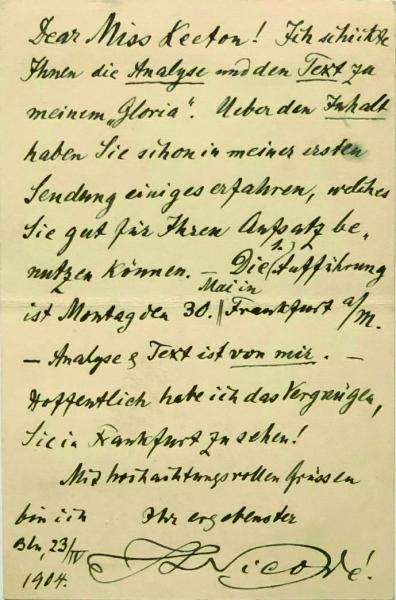 Dear Miss Keeton! Ich schickte
Ihnen die Analyse und den Text zu
meinem „Gloria“. Ueber den Inhalt
haben Sie schon in meiner ersten
Sendung einiges erfahren, welches
Sie gut für Ihren Aufsatz be-
nutzen können. — Die (1.) Aufführung
ist Montag den 30. Mai in Frankfurt a/M.
— Analyse & Text ist von mir. —
Hoffentlich habe ich das Vergnügen,
Sie in Frankfurt zu sehen!
Mit hochachtungsvollen Grüssen
bin ich Ihr ergebenster
Bln, 23/IV
1904. Nicodé!